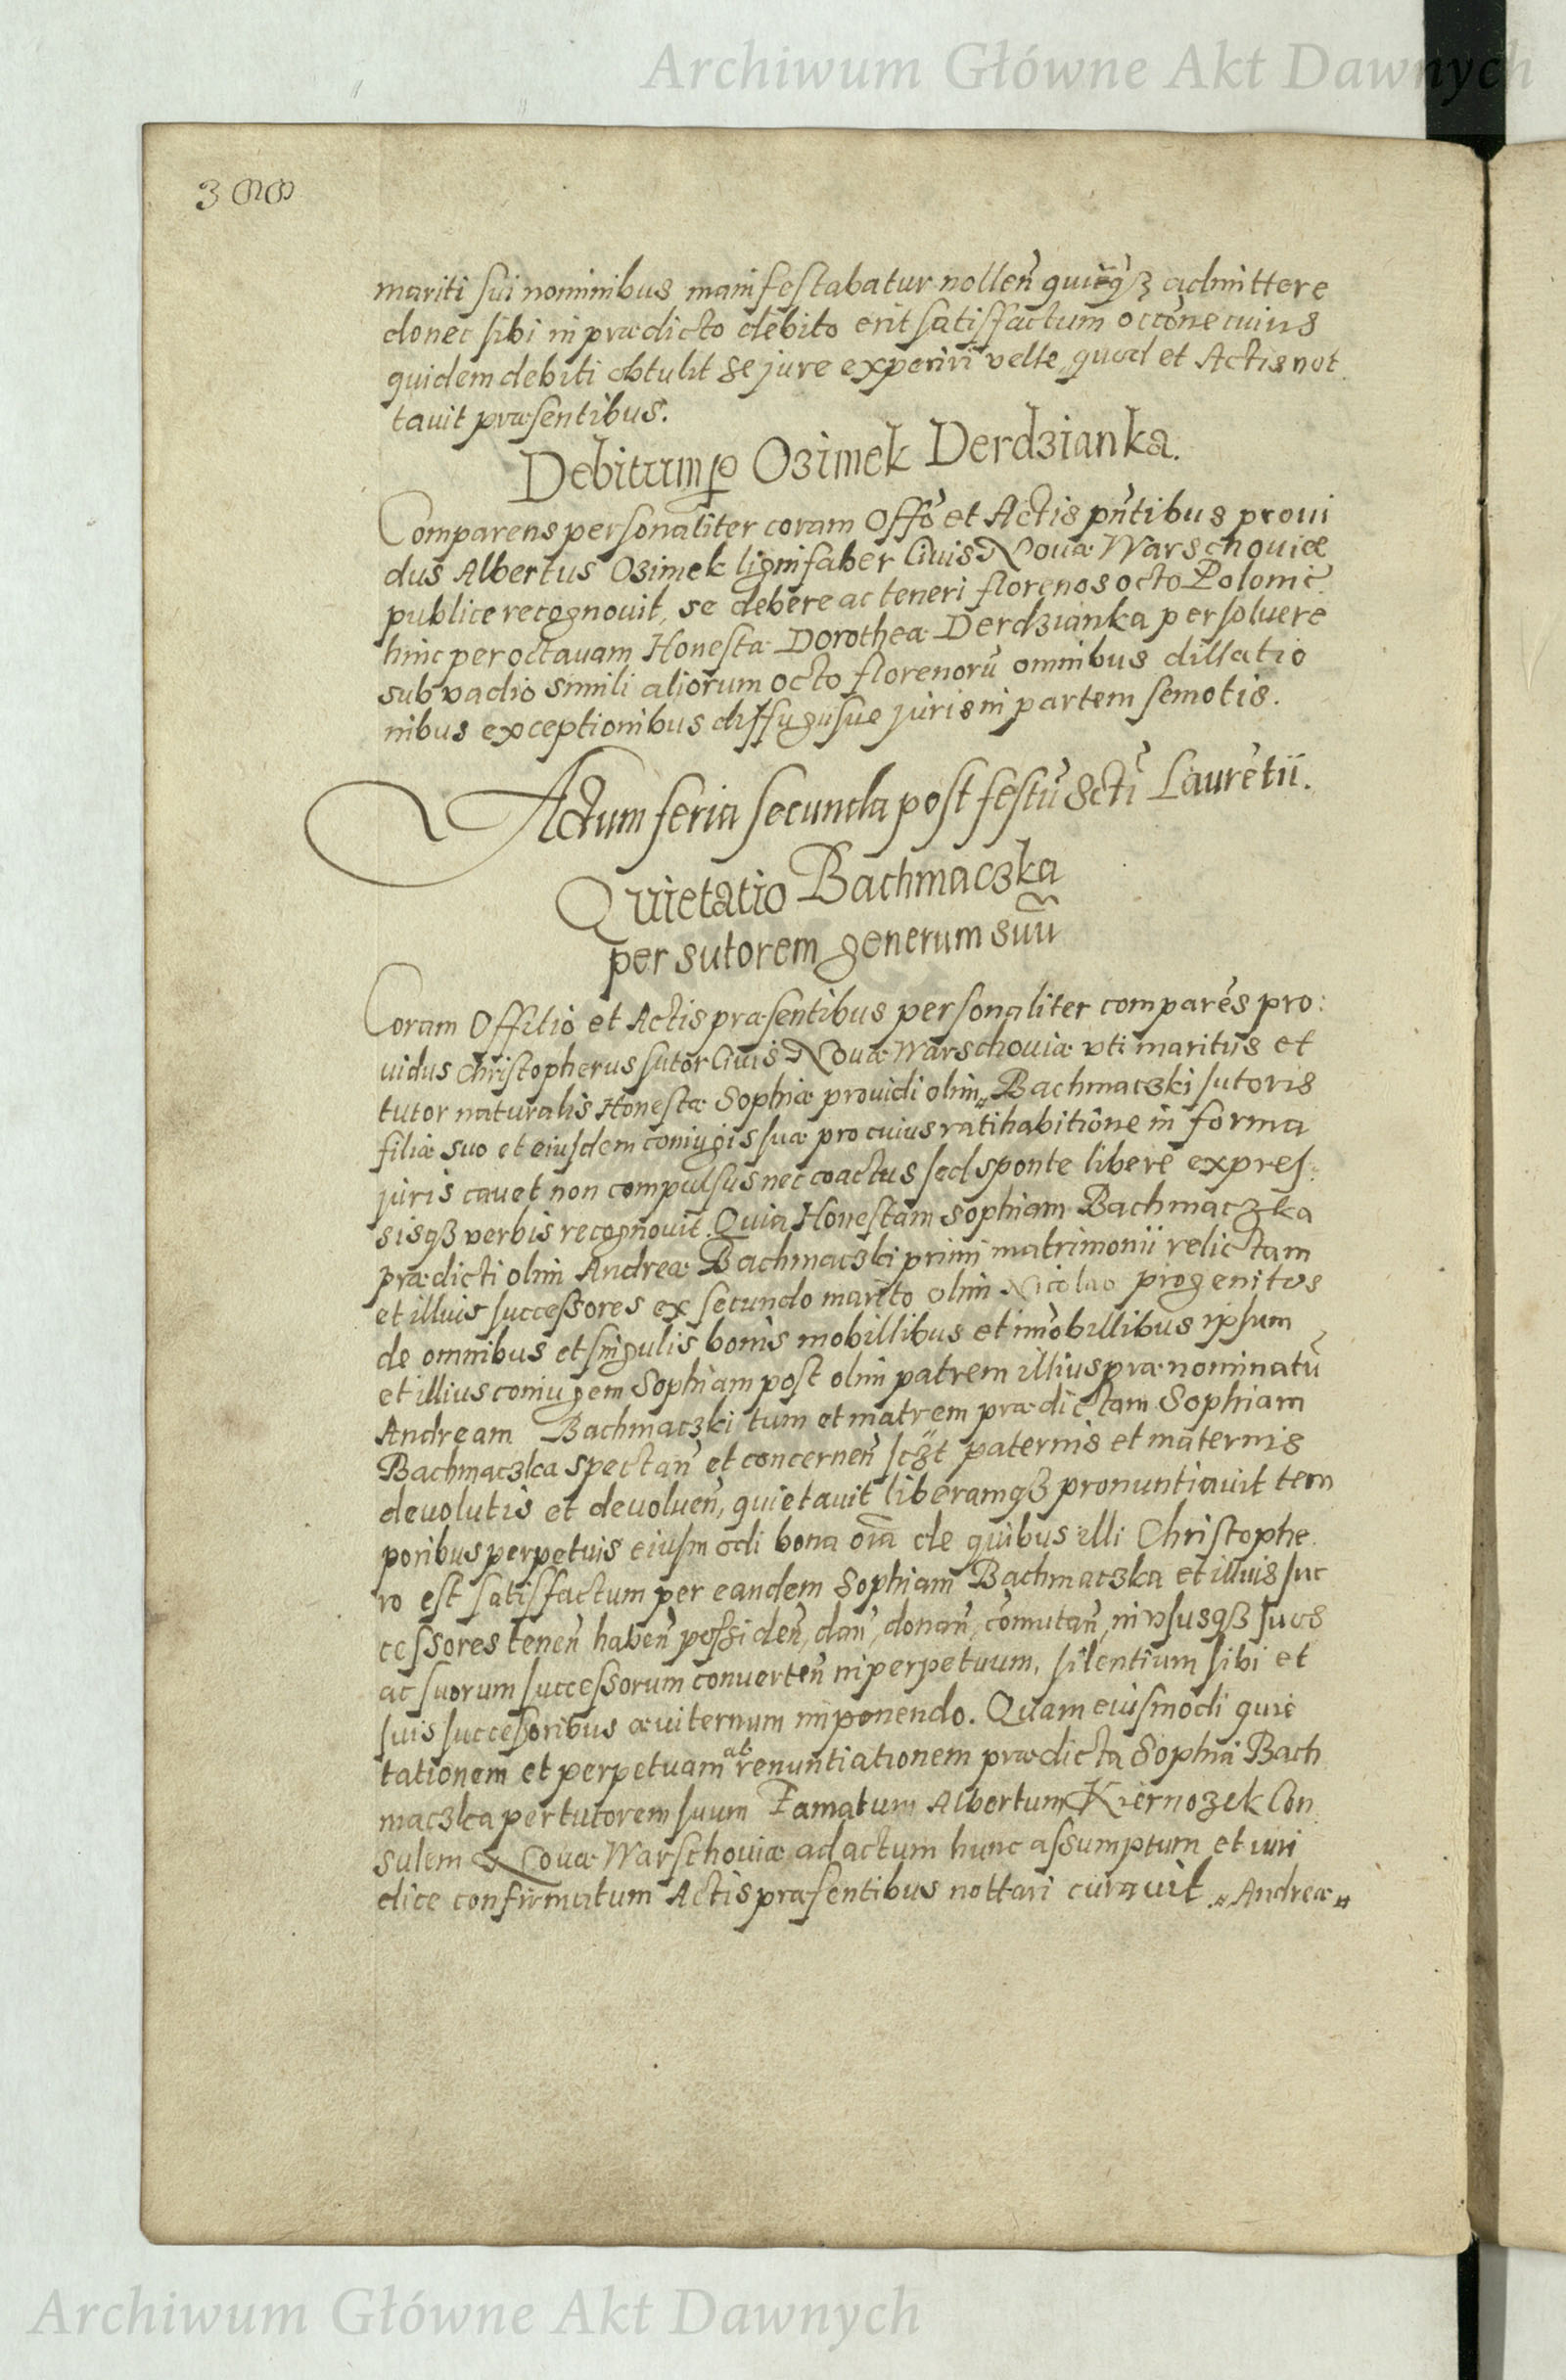 Archiwum Główne Akt Dawnych
mariti sui nominibus manifestabatur nolleñ admittere
donec sibi in prædicto debito erit satisfactum occõne cuius
quidem debiti obtulit se jure experiri velle, quod et Actis not
tavit præsentibus.
Debitum p Ozimek Derdzianka.
Comparens personaliter coram Offõ et Actis pñtibus proui
dus Albertus Ozimek lignifaber Ciuis Nouæ Warschouiæ
publice recognouit, se debere ac teneri florenos octo Polonic̃
hinc per octauam Honestæ Dorotheæ Derdzianka persoluere
sub vadio simili aliorum octo florenorũ omnibus dillatio
nibus exceptionibus diffugiisue juris in partem semotis.
Actum feria secunda post festũ Scti Laurẽtii.
Quietatio Bachmaczka
per sutorem generum suũ
Coram Offitio et Actis præsentibus personaliter comparẽs pro:
uidus Christopherus sutor Ciuis Nouæ Warschouiæ vti maritus et
tutor naturalis Honestæ Sophiæ prouidi olim „ Bachmaczki sutoris
filiæ suo et eiusdem coniugis suæ pro cuius ratihabitiõne in forma
juris cauet non compulsus nec coactus sed sponte libere expres:
sisqꝫ verbis recognouit. Quia Honestam Sophiam Bachmaczka
prædicti olim Andreæ Bachmaczki primi matrimonii relictam
et illius successores ex secundo marito olim Nicolao progenitos
de omnibus et singulis bonis mobillibus et imõbillibus ipsum
et illius coniugem Sophiam post olim patrem illius prænominatũ
Andream Bachmaczki tum et matrem prædictam Sophiam
Bachmaczka spectañ et concerneñ scꝫt paternis et maternis
devolutis et devolueñ, quietauit liberamqꝫ pronuntiauit tem
poribus perpetuis eiusmodi bona oĩa de quibus illi Christophe
ro est satisfactum per eandem Sophiam Bachmaczka et illius suc
cessores teneñ habeñ possideñ, dañ, donañ, cõmutañ, in vsusqꝫ suos
ac suorum successorum converteñ in perpetuum, silentium sibi et
suis successoribus æuiternum imponendo. Quam eiusmodi quie
tationem et perpetuam at renuntiationem prædicta Sophia Bach
maczka per tutorem suum Famatum Albertum Kiernozek Con
sulem Nouæ Warschouiæ ad actum hunc assumptum et iuri
dice confirmatum Actis præsentibus nottari curauit „ Andreæ „
Archiwum Główne Akt Dawnych